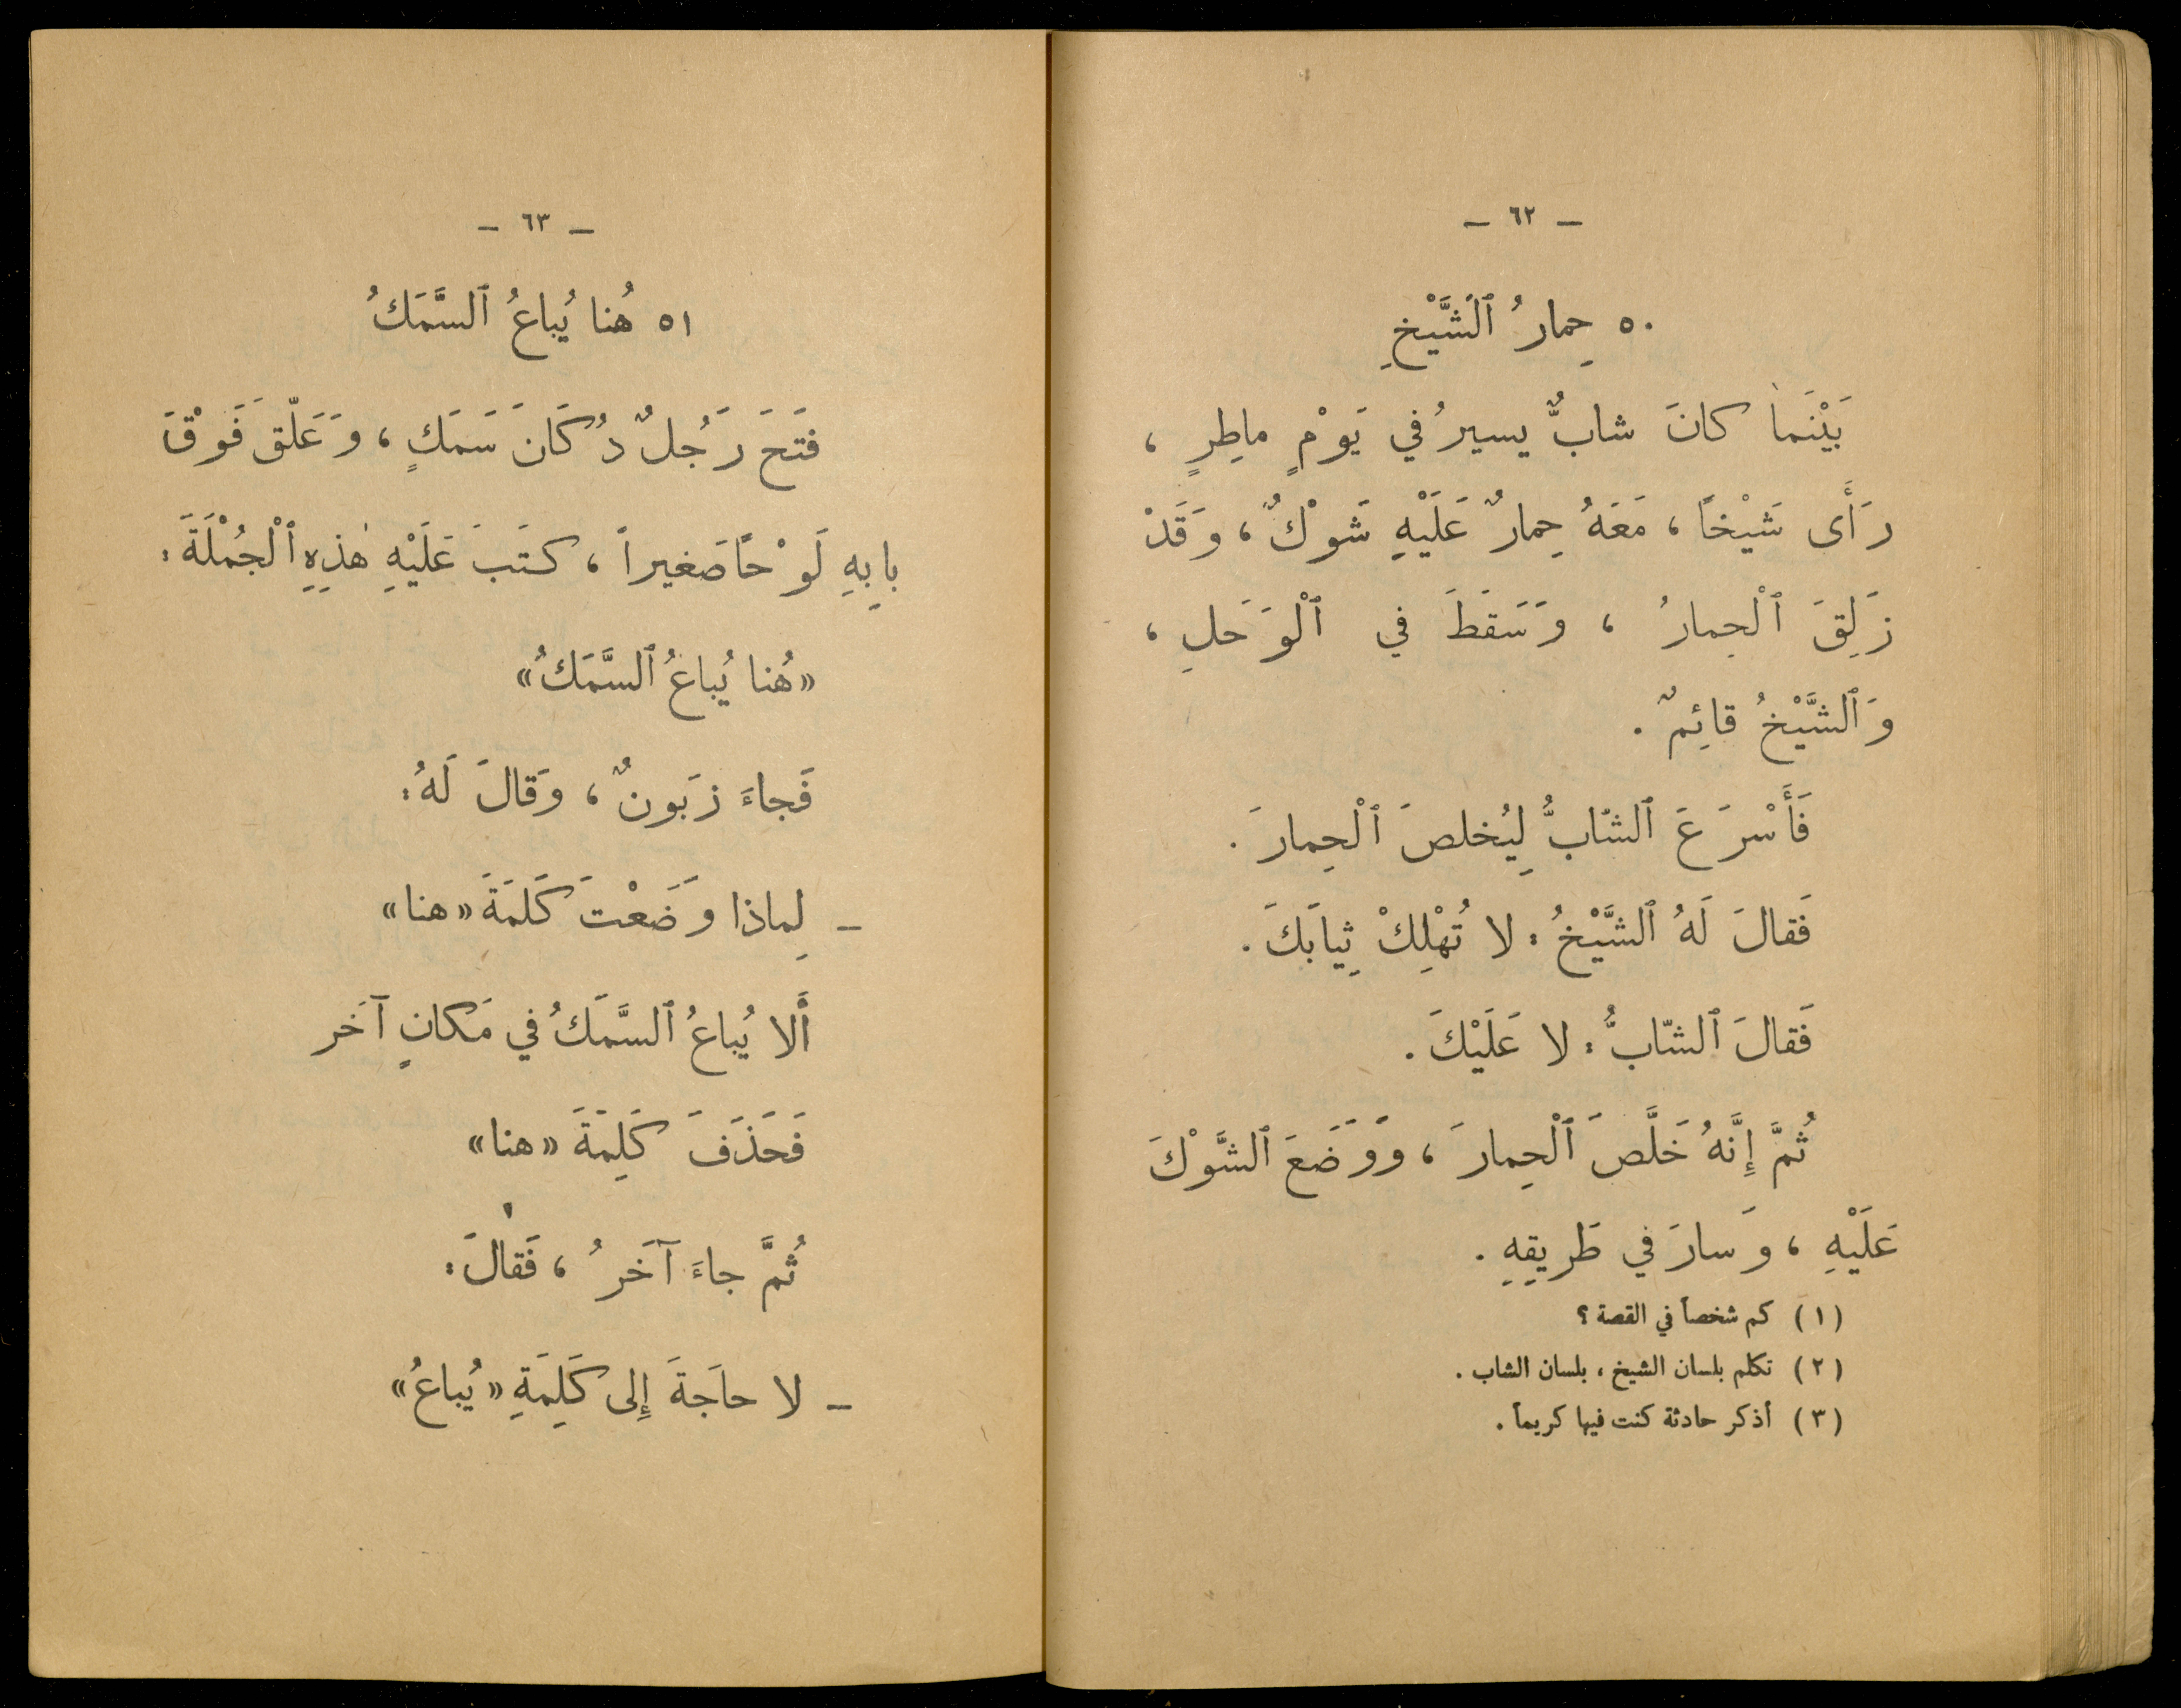 — ٦٢ —
٥٠ حِمارُ ٱلشَّيْخِ
بَيْنَما كانَ شابٌّ يسيرُ في يَوْمٍ ماطِرٍ ،
رَأَى شَيْخاً ، مَعَهُ حِمارٌ عَلَيْهِ شَوْكٌ ، وَقَدْ
زَلِقَ ٱلْحِمارُ ، وَسَقَطَ في ٱلْوَحَلِ ،
وَٱلشَّيْخُ قائِمٌ .
فَأَسْرَعَ ٱلشّابُّ لِيُخلصَ ٱلْحِمارَ .
فَقالَ لَهُ ٱلشَّيْخُ : لا تُهْلِكْ ثِيابَكَ .
فَقالَ ٱلشّابُّ : لا عَلَيْكَ .
ثُمَّ إِنَّهُ خَلَّصَ ٱلْحِمارَ ، وَوَضَعَ ٱلشَّوْكَ
عَلَيْهِ ، وَسارَ في طَريقِهِ .
(١) كم شخصاً في القصة ؟
(٢) تكلم بلسان الشيخ ، بلسان الشاب .
(٣) أذكر حادثة كنت فيها كريماً .
— ٦٣ —
٥١ هُنا يُباعُ ٱلسَّمَكُ
فَتَحَ رَجُلٌ دُكَانَ سَمَكٍ ، وَعَلّقَ فَوْقَ
بابِهِ لَوْحاً صَغيراً ، كتَبَ عَلَيْهِ هٰذِهِ ٱلْجُمْلَةَ :
«هُنا يُباعُ ٱلسَّمَكُ»
فَجاءَ زَبَونٌ ، وَقالَ لَهُ :
— لِماذا وَضَعْتَ كَلمَةَ «هنا»
أَلا يُباعُ ٱلسَّمَكُ في مَكانٍ آخَر
فَحَذَفَ كَلِمَةَ «هنا»
ثُمَّ جاءَ آخَرُ ، فَقالَ :
— لا حاجَةَ إِلى كَلِمَةِ «يُباعُ»